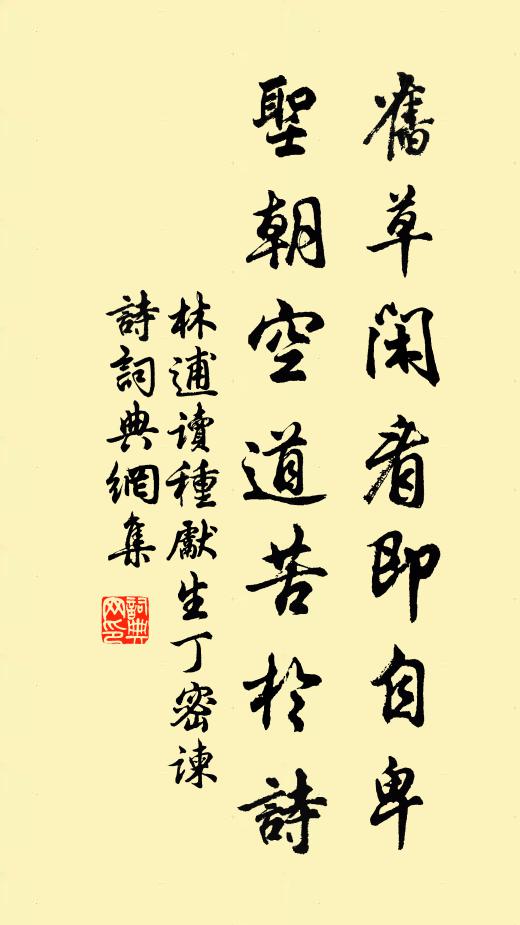 舊草閑看即自卑
聖朝空道苦於詩
林逋讀種獻生丁密諫
詩詞典網集
詞典网印